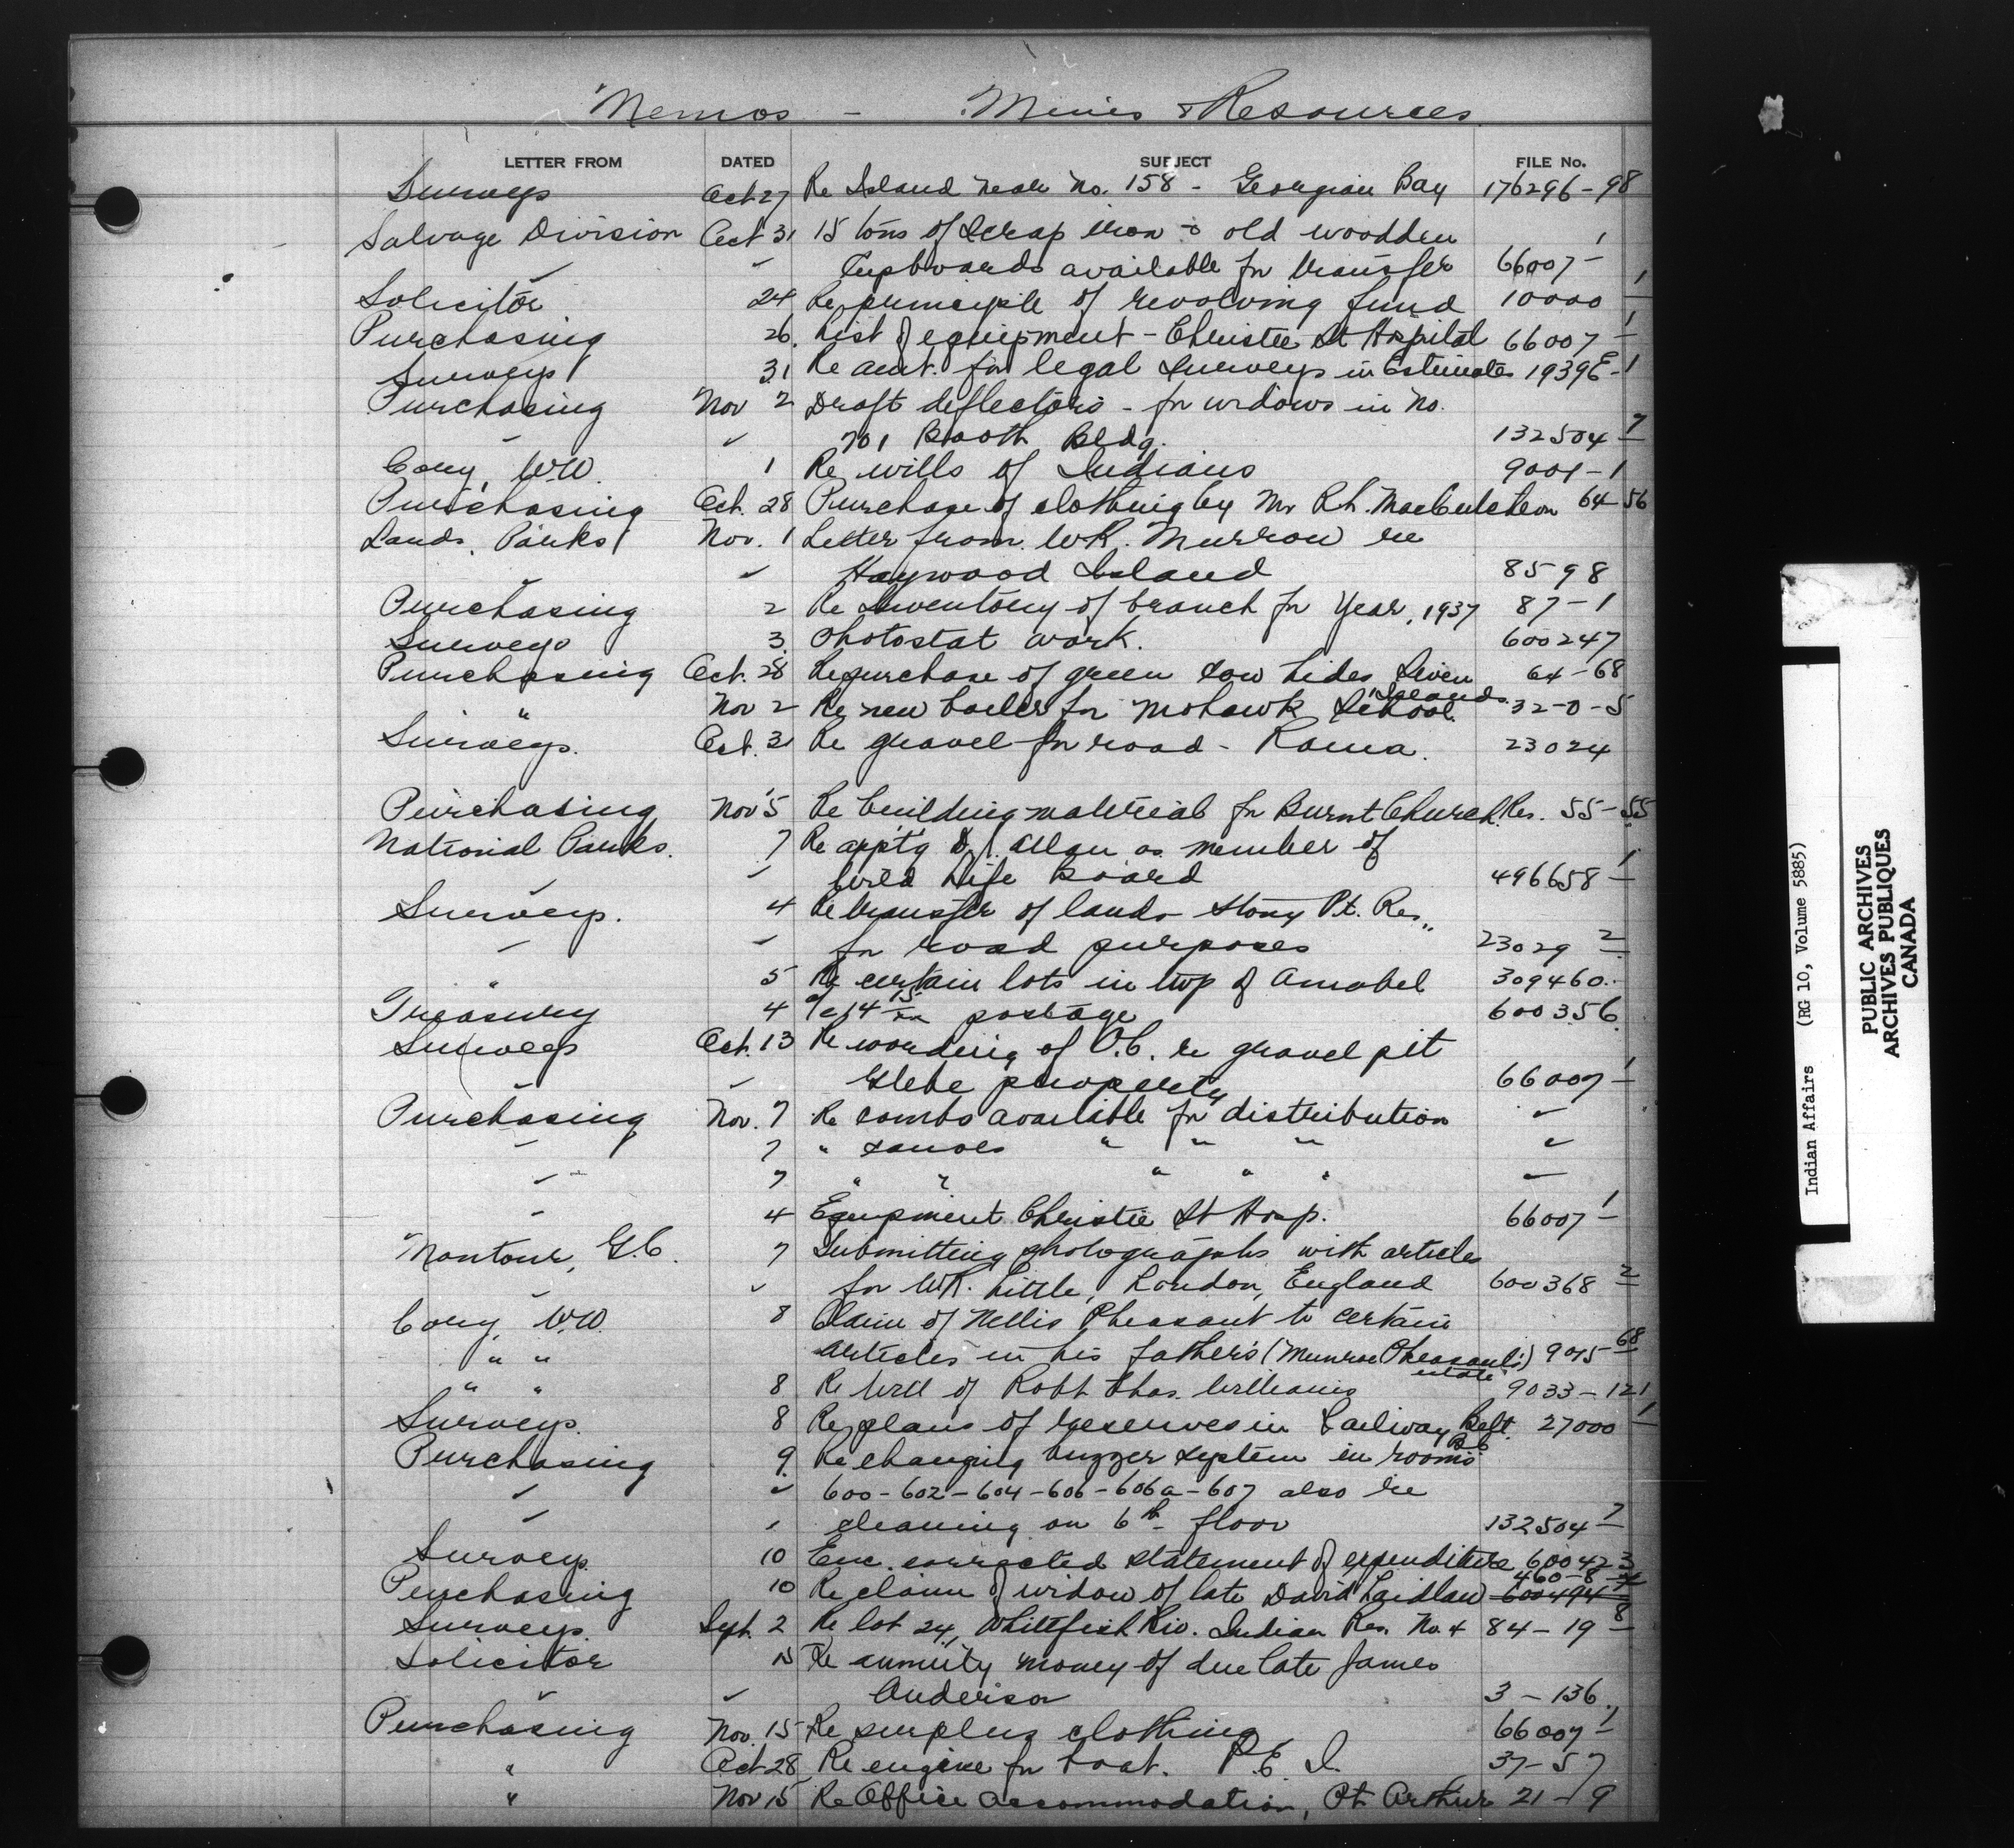 Memos - Mines & Resources
LETTER FROM DATED SUBJECT FILE No.
Surveys Oct 27 Re Island near No. 158 - Georgian Bay 176296-98
Salvage Division Oct 31 15 tons of scrap iron & old wooden
✓ ✓ Cupboards available for transfer 66007-1
Solicitor 24 Re principle of revolving fund 10000-1
Purchasing 26. List of equipment - Christie St Hospital 66007-1
Surveys 31 Re amt. for legal surveys in Estimates 1939E-1
Purchasing Nov 2 Draft deflectors - for windows in No.
✓ ✓ 701 Booth Bldg. 132504-7
Cory, W.W. 1 Re wills of Indians 9001-1
Purchasing Oct. 28 Purchase of clothing by Mr R.L. MacCutcheon 64-56
Lands, Parks Nov. 1 Letter from W.R. Murrow re
✓ ✓ Haywood Island 8598
Purchasing 2 Re Inventory of branch for Year, 1937 87-1
Surveys 3 Photostat work. 600247
Purchasing Oct. 28 Re purchase of green cow hides 64-68
" Nov 2 Re new boiler for Mohawk School. 32-0-5
Surveys. Oct. 31 Re gravel for road - Rama. 23024
Purchasing Nov 5 Re building material for Burnt Church Res. 55-55
National Parks. 7 Re apptg D.J. Allan as member of
✓ Wild Life Board 496658-1
Surveys. 4 Re transfer of lands Stony Pt. Res.
✓ ✓ for road purposes 23029-2
" 5 Re certain lots in twp of Amabel 309460.
Treasury 4 a/c 14 15/xx postage 600356
Surveys Oct. 13 Re wording of O.C. re gravel pit
✓ ✓ Glebe property 66007-1
Purchasing Nov. 7 Re combs available for distribution ✓
✓ 7 " canoes " " " ✓
✓ 7 " " " " " ✓
✓ 4 Equipment Christie St Hosp. 66007-1
Montour, G.C. 7 Submitting photographs with articles
✓ ✓ for W.R. Little, London, England 600368-2
Cory, W.W. 8 Claim of Nellis Pheasant to certain
" " articles in his father's (Munroe Pheasant's) estate 9015-68
" " 8 Re Will of Robt Chas. Williams 9033-121
Surveys. 8 Re plans of reserves in Railway Belt B.C. 27000-1
Purchasing 9. Re changing buzzer system in rooms
✓ ✓ 600-602-604-606-606a-607 also re
✓ ✓ cleaning on 6th floor 132504-7
Surveys. 10 Enc. corrected statement of expenditure 600423
Purchasing 10 Re claim of widow of late David Laidlaw 600494 460-8
Surveys. Sept. 2 Re lot 24, Whitefish Riv. Indian Res. No. 4 84-19-8
Solicitor 15 Re annuity money of due late James
✓ ✓ Anderson 3-136.
Purchasing Nov. 15 Re surplus clothing 66007-1
" Oct 28 Re engine for boat. P.E.I. 37-57
" Nov 15 Re Office accommodation, Pt. Arthur 21-9
Indian Affairs (RG 10, Volume 5885)
PUBLIC ARCHIVES
ARCHIVES PUBLIQUES
CANADA